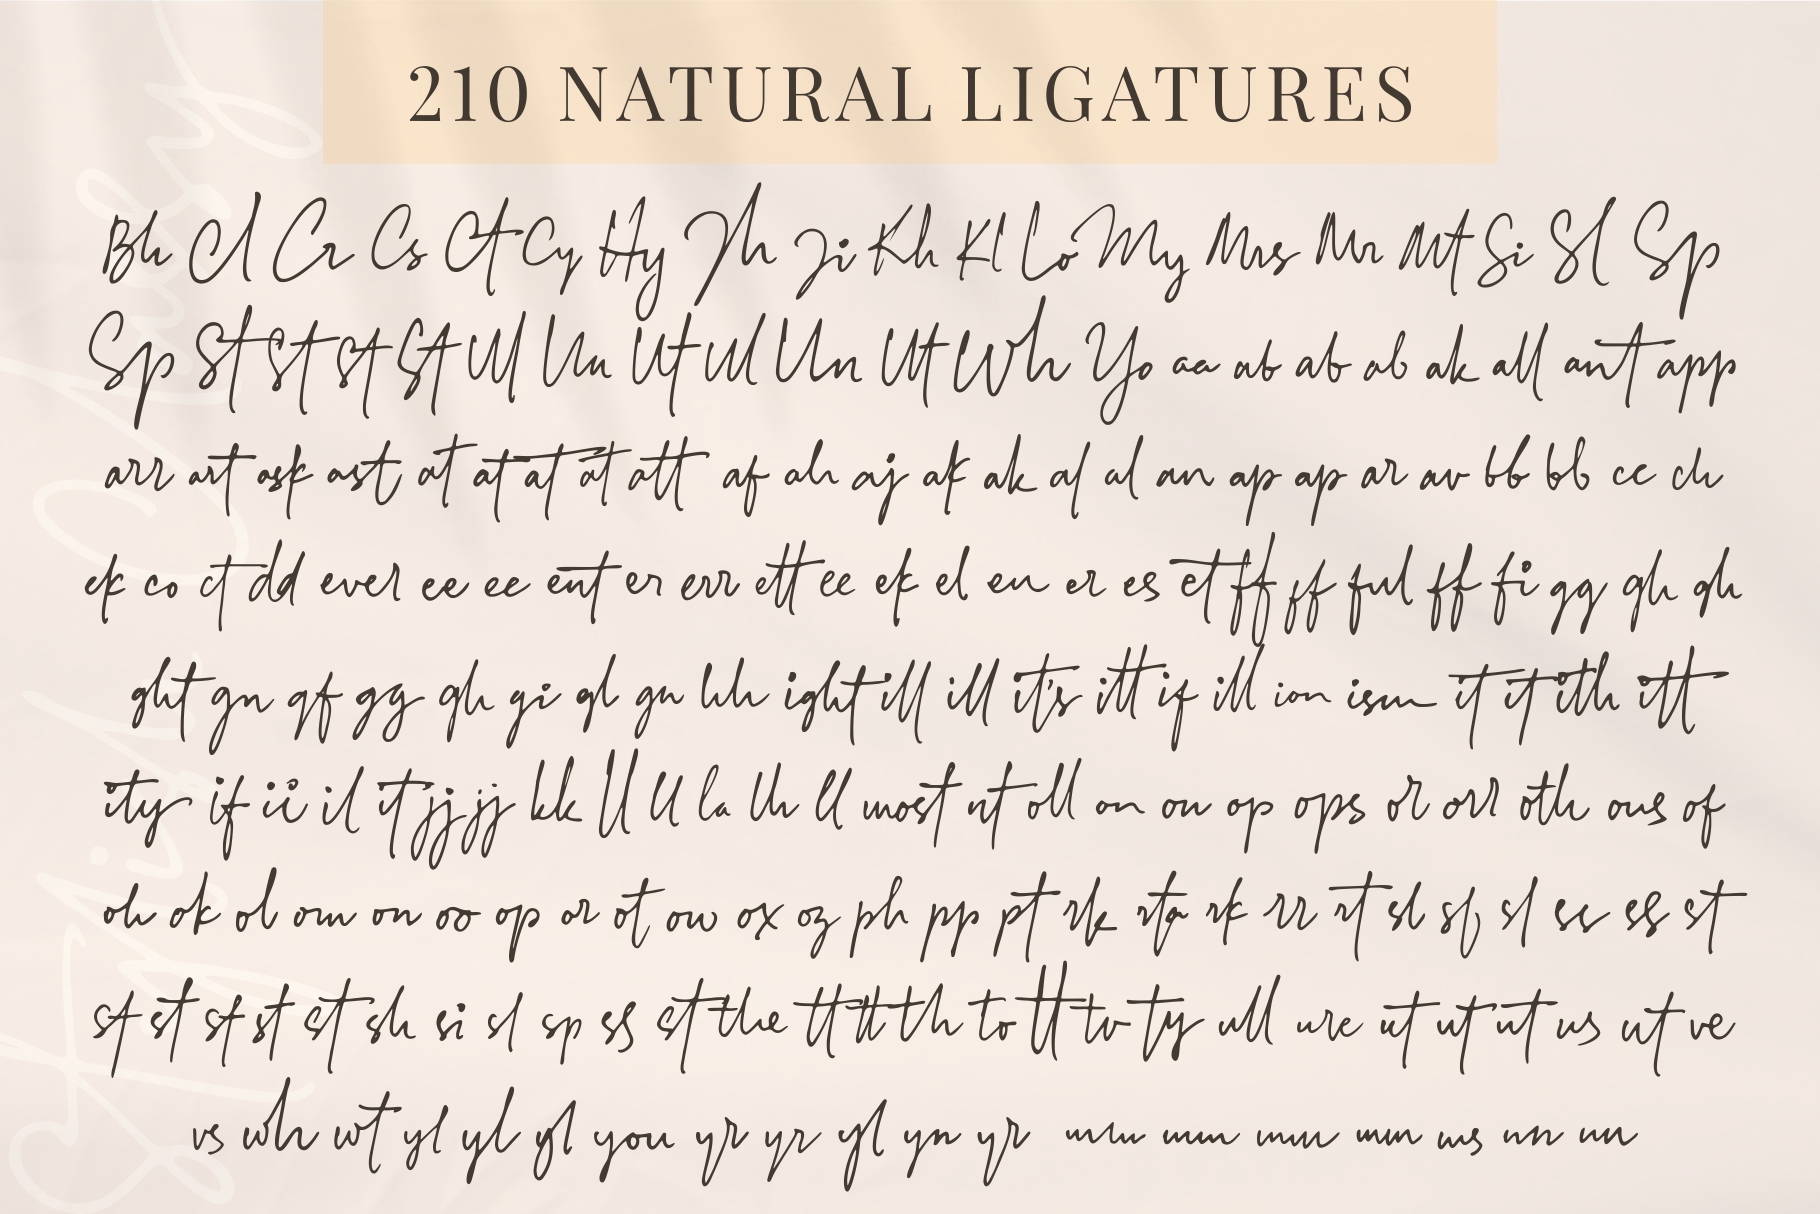 210 NATURAL LIGATURES
Bh Cl Cr Cs Ct Cy Hy Jh Ji Kh Kl Lo My Mrs Mr Mt Si Sl Sp
Sp St St St St Ul Un Ut Ul Un Ut Wh Yo aa ab ab ab ak all ant app
arr art ask ast at at at at att af ah aj ak ak al al an ap ap ar av bb bb cc ch
ck co ct dd ever ee ee ent er err ett ee ek el en er es et ff ff ful ff fi gg gh gh
ght gn gf gg gh gi gl gn hh ight ill ill it's itt if ill ion ism it it ith itt
ity if ii il it jj jj kk ll ll la lh ll most nt oll on on op ops or orr oth ous of
oh ok ol om on oo op or ot ow ox oz ph pp pt rk rta rk rr rt sl sf sl ss ss st
st st st st st sh si sl sp ss st the tt tt th to tt tv ty ull ure ut ut ut us ut ve
vs wh wt yl yl yl you yr yr yl yn yr mm mm mm mm ms nn nn
Stylish Chalsy